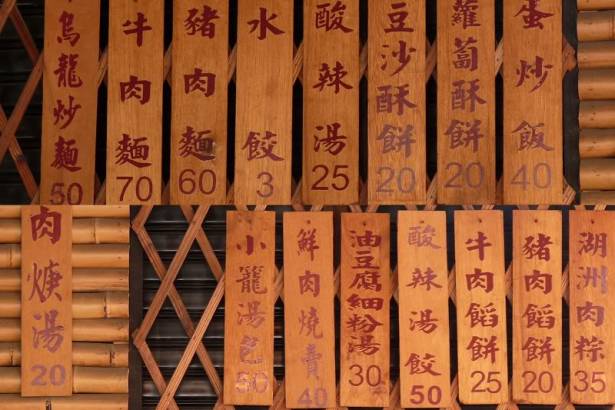 烏龍炒麵
50
牛肉麵
70
豬肉麵
60
水餃
3
酸辣湯
25
豆沙酥餅
20
蘿蔔酥餅
20
蛋炒飯
40
肉焿湯
20
小籠湯包
50
鮮肉燒賣
40
油豆腐細粉湯
30
酸辣湯餃
50
牛肉餡餅
25
豬肉餡餅
20
湖洲肉粽
35